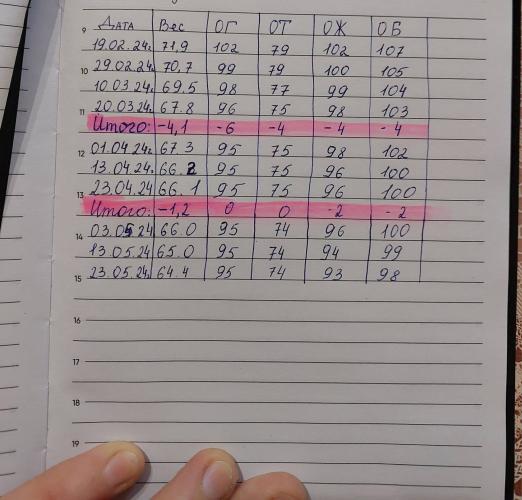 9 Дата Вес ОГ ОТ ОЖ ОБ
19.02.24г. 71,9 102 79 102 107
10 29.02.24г. 70,7 99 79 100 105
10.03.24г. 69.5 98 77 99 104
11 20.03.24г. 67.8 96 75 98 103
Итого: -4,1 -6 -4 -4 -4
12 01.04.24г. 67.3 95 75 98 102
13.04.24г. 66.2 95 75 96 100
13 23.04.24 66.1 95 75 96 100
Итого: -1,2 0 0 -2 -2
14 03.05.24 66.0 95 74 96 100
13.05.24 65.0 95 74 94 99
15 23.05.24. 64.4 95 74 93 98
16
17
18
19